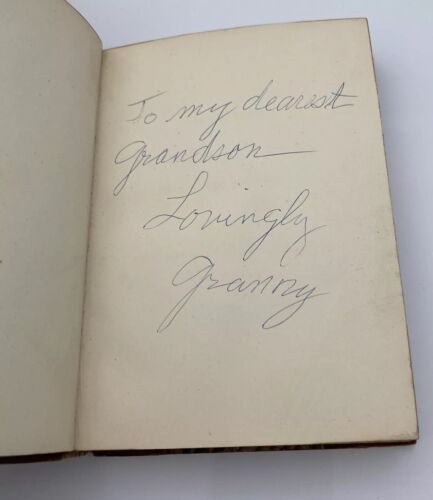 To my dearest
Grandson
Lovingly
Granny